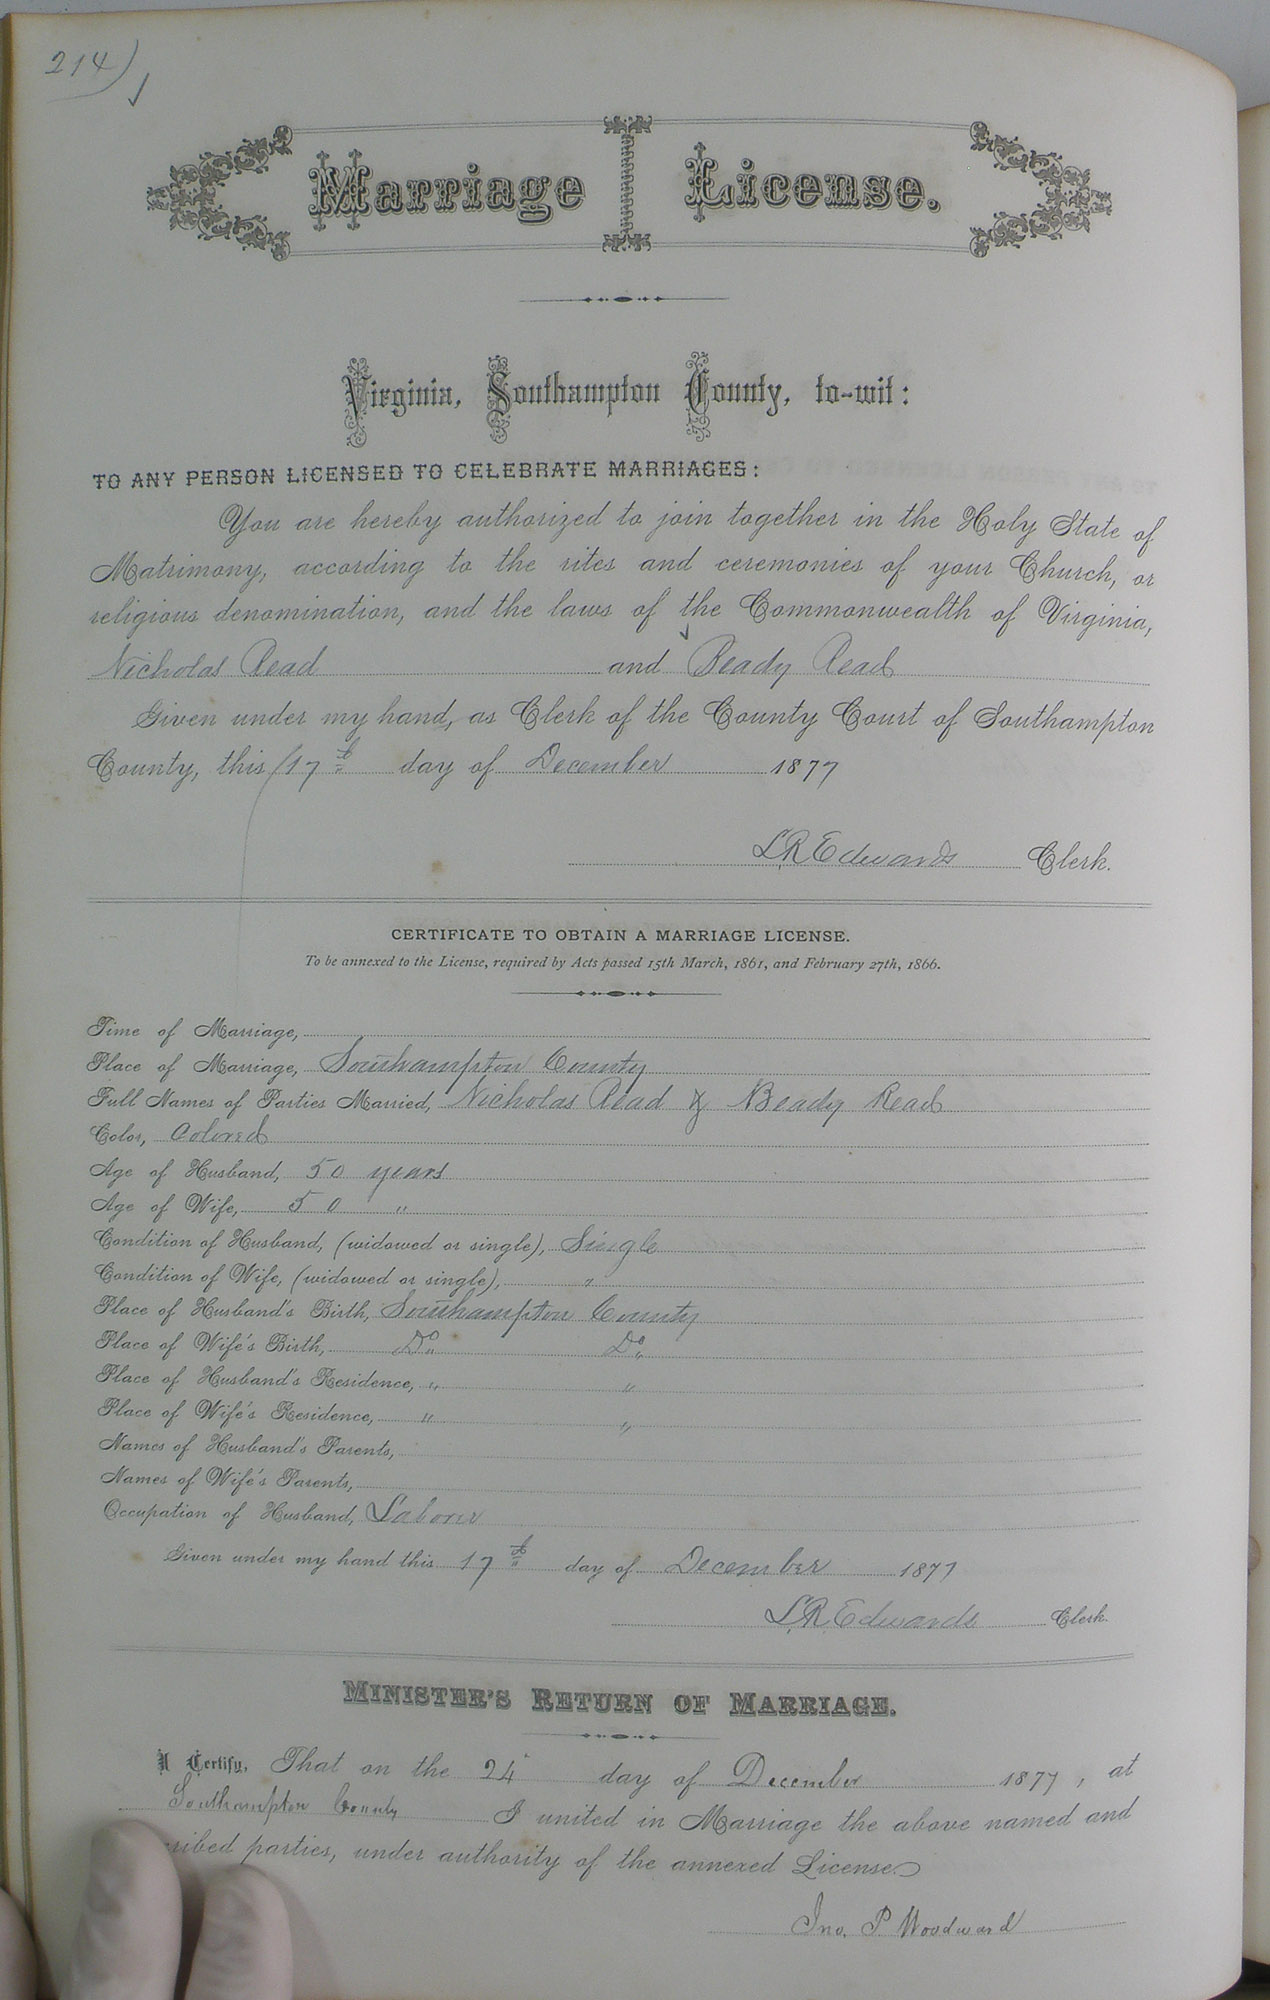 214)
Marriage License.
Virginia, Southampton County, to-wit:
TO ANY PERSON LICENSED TO CELEBRATE MARRIAGES:
You are hereby authorized to join together in the Holy State of
Matrimony, according to the rites and ceremonies of your Church, or
religious denomination, and the laws of the Commonwealth of Virginia,
Nicholas Read and Beady Read
Given under my hand, as Clerk of the County Court of Southampton
County, this 17th day of December 1877
L.R. Edwards Clerk.
CERTIFICATE TO OBTAIN A MARRIAGE LICENSE.
To be annexed to the License, required by Acts passed 15th March, 1861, and February 27th, 1866.
Time of Marriage,
Place of Marriage, Southampton County
Full Names of Parties Married, Nicholas Read & Beady Read
Color, Colored
Age of Husband, 50 years
Age of Wife, 50 "
Condition of Husband, (widowed or single), Single
Condition of Wife, (widowed or single), "
Place of Husband's Birth, Southampton County
Place of Wife's Birth, Do Do
Place of Husband's Residence, " "
Place of Wife's Residence, " "
Names of Husband's Parents,
Names of Wife's Parents,
Occupation of Husband, Laborer
Given under my hand this 17th day of December 1877
L.R. Edwards Clerk.
MINISTER'S RETURN OF MARRIAGE.
I Certify, That on the 24 day of December 1877, at
Southampton County I united in Marriage the above named and
cribed parties, under authority of the annexed License.
Jno. P Woodward